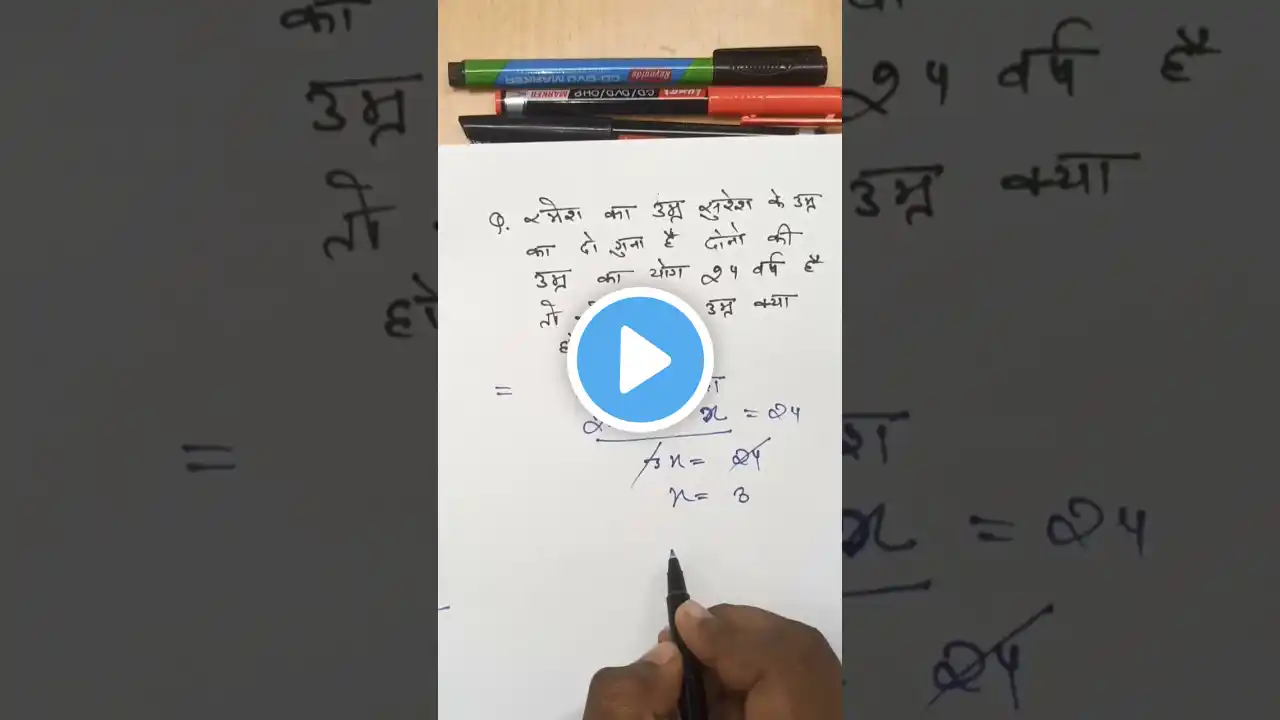 Reynolds CD-DVD MARKER
CD/DVD/OHP MARKER
Q. रमेश का उम्र सुरेश के उम्र
का दो गुना है दोनो की
उम्र का योग 24 वर्ष है
तो उम्र क्या
=
x = 24
3x = 24
x = 3